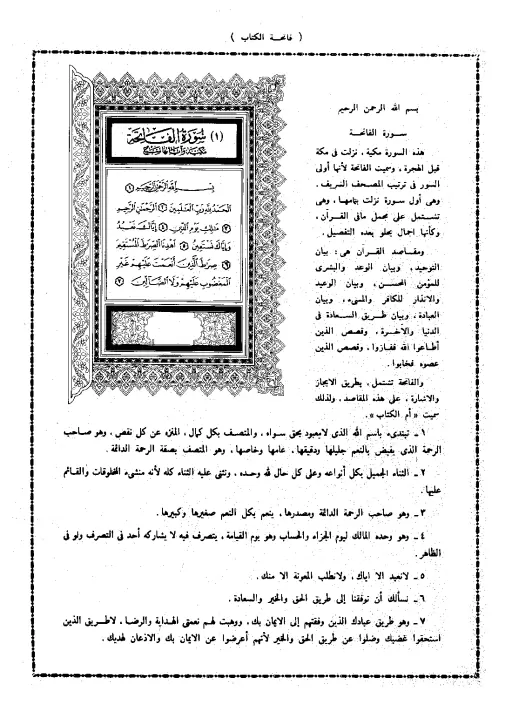 ( فاتحة الكتاب )
(١) سورة الفاتحة
بسم الله الرحمن الرحيم ١
الحمد لله رب العالمين ٢ الرحمن الرحيم
٣ مالك يوم الدين ٤ إياك نعبد
وإياك نستعين ٥ اهدنا الصراط المستقيم
٦ صراط الذين أنعمت عليهم غير
المغضوب عليهم ولا الضالين ٧
بسم الله الرحمن الرحيم
سورة الفاتحة
هذه السورة مكية ، نزلت في مكة
قبل الهجرة ، وسميت الفاتحة لأنها أولى
السور في ترتيب المصحف الشريف .
وهى أول سورة نزلت بتمامها ، وهى
تشتمل على مجمل مافى القرآن ،
وكأنها اجمال يحلو بعده التفصيل .
ومقاصد القرآن هى : بيان
التوحيد ، وبيان الوعد والبشرى
للمؤمن المحسن ، وبيان الوعيد
والانذار للكافر والمسىء ، وبيان
العبادة ، وبيان طريق السعادة فى
الدنيا والآخرة ، وقصص الذين
أطاعوا الله ففازوا ، وقصص الذين
عصوه فخابوا .
والفاتحة تشتمل ، بطريق الايجاز
والاشارة ، على هذه المقاصد ، ولذلك
سميت « أم الكتاب » .
١ ـ تبتدىء باسم الله الذى لايعبود بحق سواه ، والمتصف بكل كمال ، المنزه عن كل نقص ، وهو صاحب
الرحمة الذى يفيض بالنعم جليلها ودقيقها ، عامها وخاصها ، وهو المتصف بصفة الرحمة الدائمة .
٢ ـ الثناء الجميل بكل أنواعه وعلى كل حال لله وحده ، ونثنى عليه الثناء كله لأنه منشىء المخلوقات والقائم
عليها .
٣ ـ وهو صاحب الرحمة الدائمة ومصدرها ، ينعم بكل النعم صغيرها وكبيرها .
٤ ـ وهو وحده المالك ليوم الجزاء والحساب وهو يوم القيامة ، يتصرف فيه لا يشاركه أحد فى التصرف ولو فى
الظاهر .
٥ ـ لانعبد الا اياك ، ولانطلب المعونة الا منك .
٦ ـ نسألك أن توفقنا إلى طريق الحق والخير والسعادة .
٧ ـ وهو طريق عبادك الذين وفقتهم إلى الايمان بك ، ووهبت لهم نعمتى الهداية والرضا ، لاطريق الذين
استحقوا غضبك وضلوا عن طريق الحق والخير لأنهم أعرضوا عن الايمان بك والاذعان لهديك .